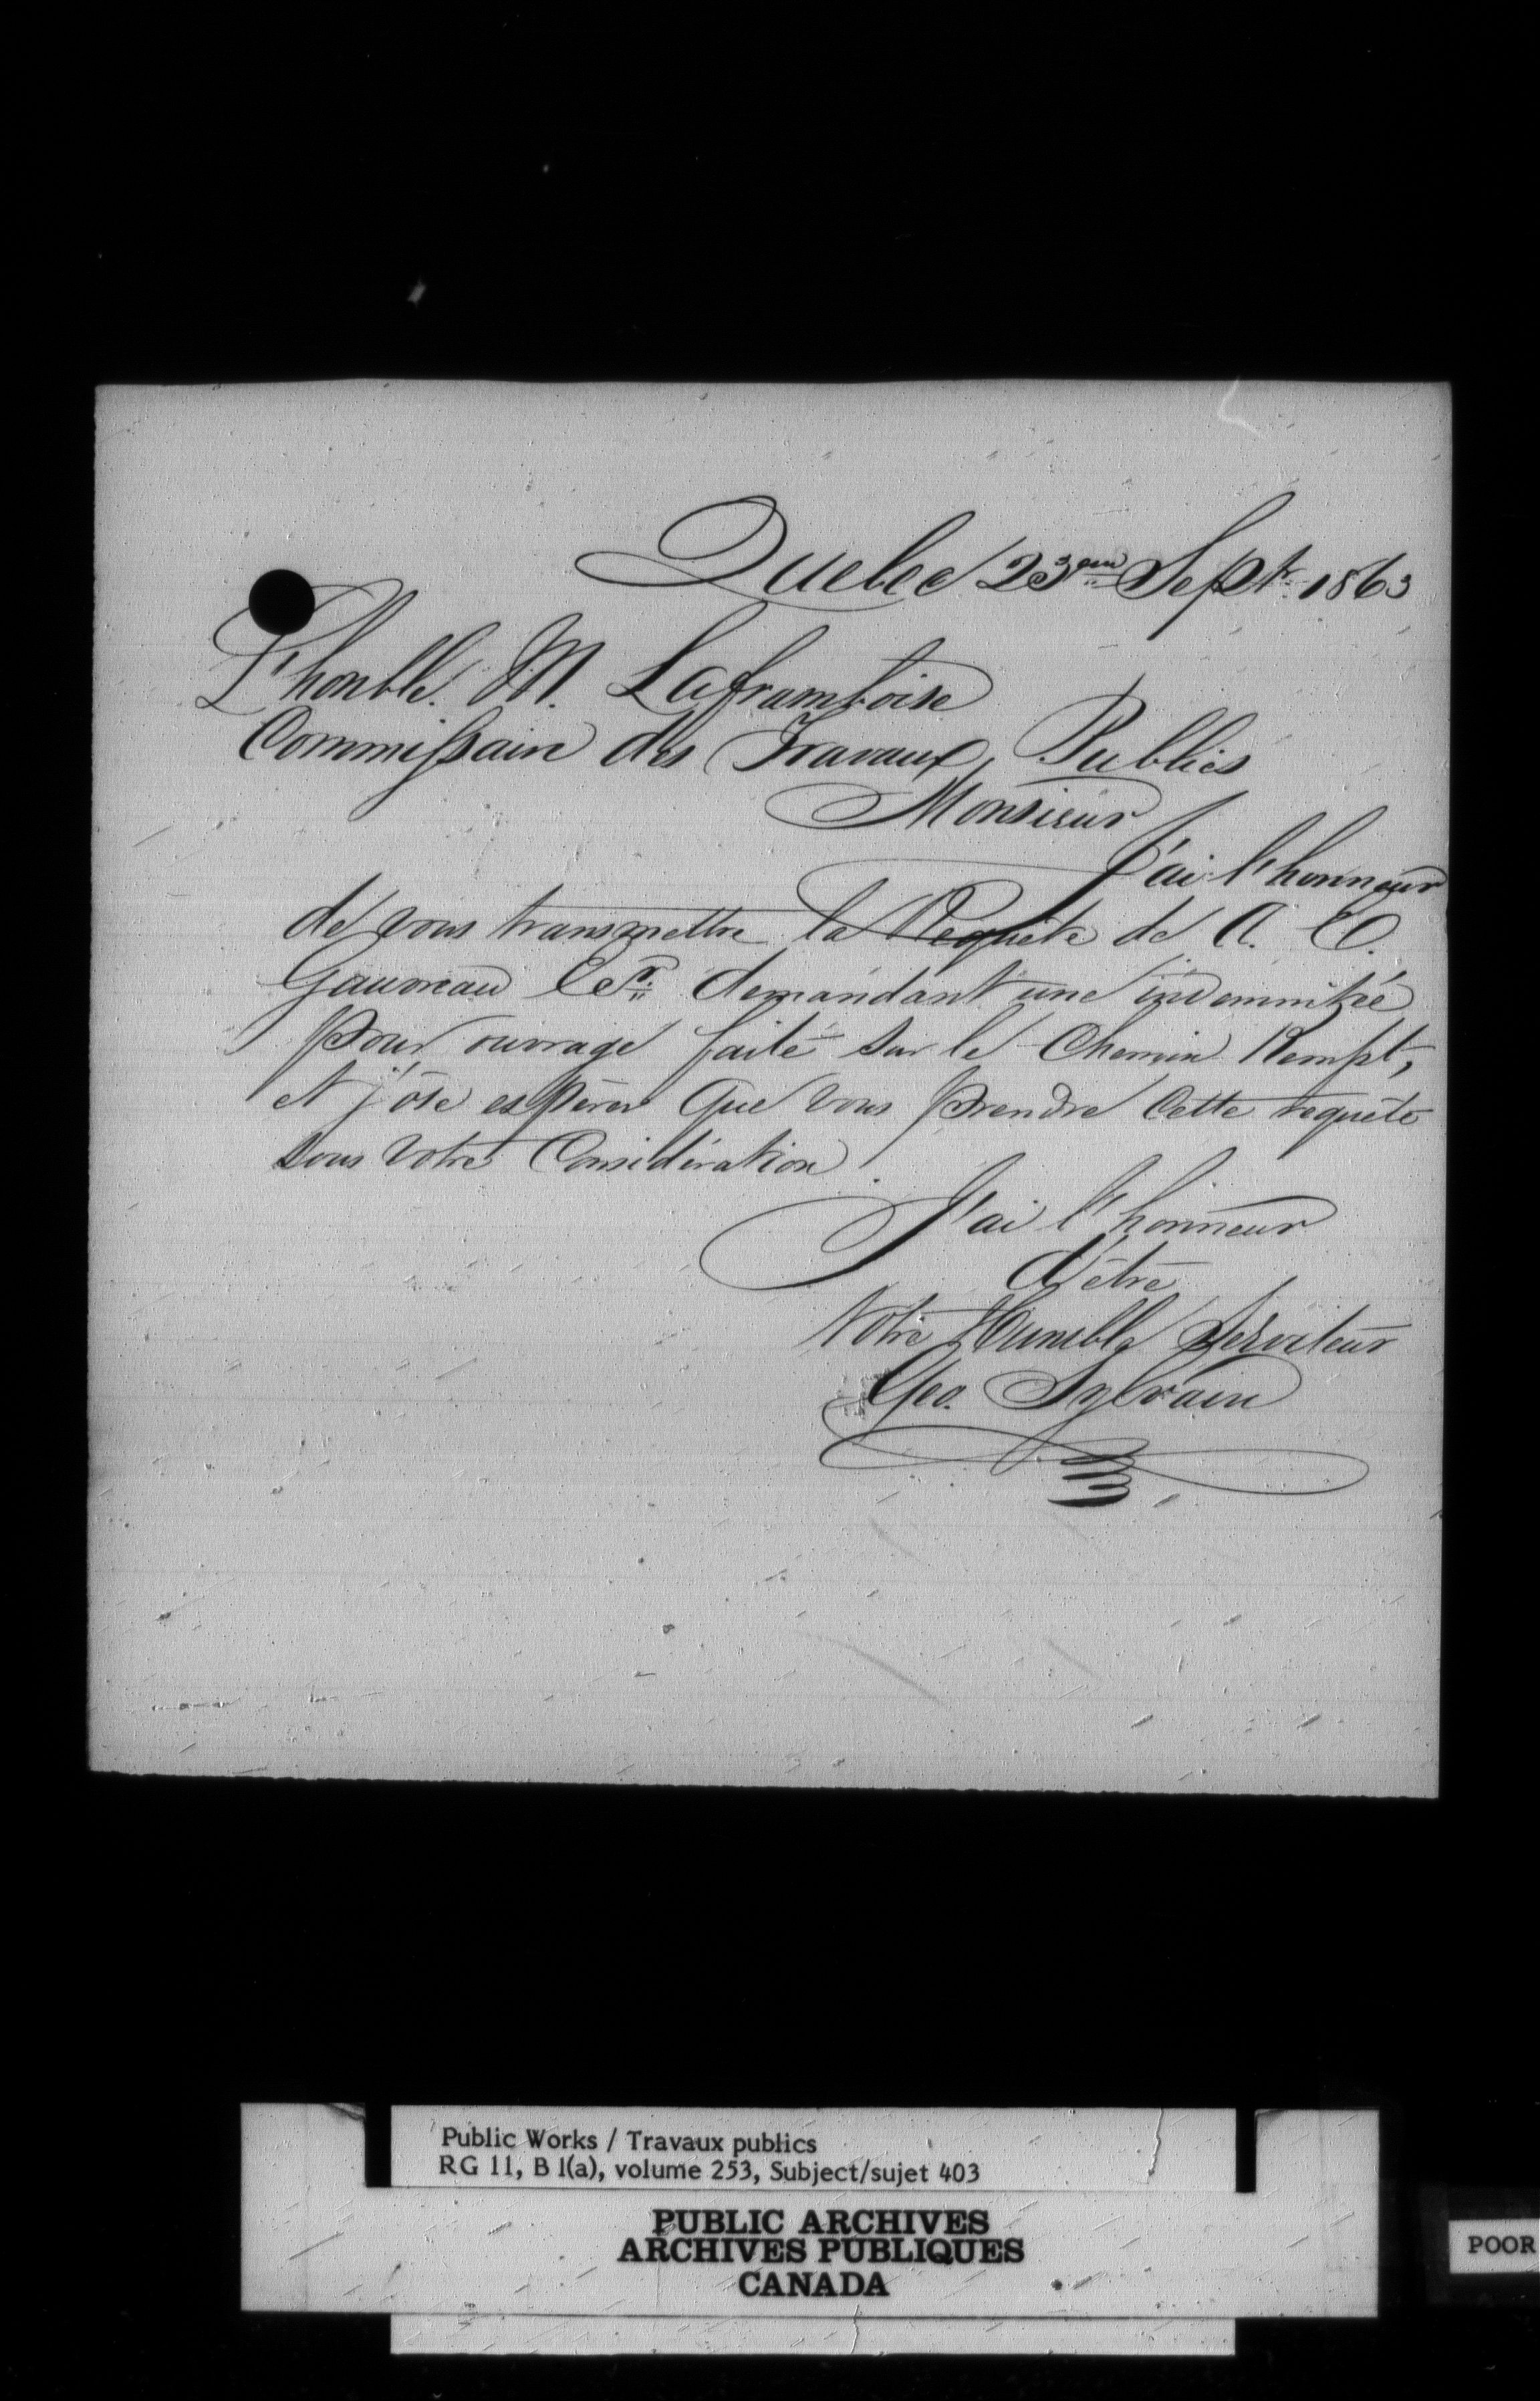 Quebec 23eme Sept. 1863
L'honble. M. Laframboise
Commissaire des Travaux Publics
Monsieur
J'ai l'honneur
de vous transmettre la Requête de A. C.
Gauvreau Ecr. demandant une indemnitée
pour ouvrage faite sur le Chemin Kempt,
et j'ôse espérer que vous prendre cette requête
sous votre Considération.
J'ai l'honneur
d'être
Votre Humble Serviteur
Geo. Sylvain
Public Works / Travaux publics
RG 11, B 1(a), volume 253, Subject/sujet 403
PUBLIC ARCHIVES
ARCHIVES PUBLIQUES
CANADA
POOR